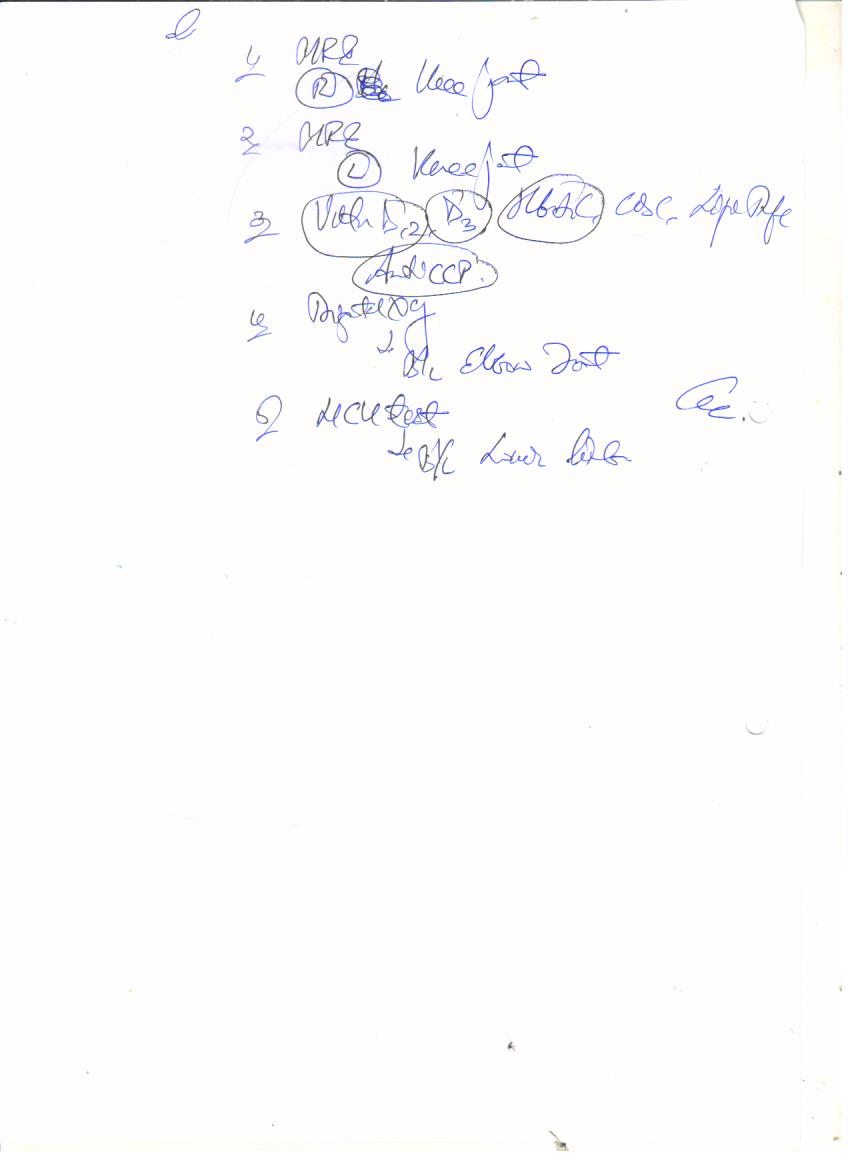 1) MRI
(R) Knee joint
2) MRI
(L) Knee joint
3) Vitamin B12, D3, HbA1C, CBC, Lipid Profile
Anti CCP.
4) Digital X
B/L Elbow Joint
5) test
B/L Lower